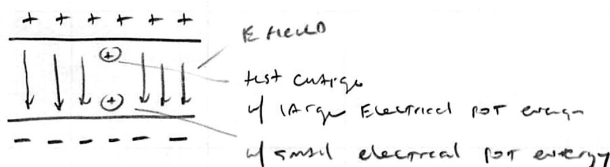 + + + + + +
E field
+
test charge
w/ large Electrical pot energy
+
w/ small electrical pot energy
- - - - - -